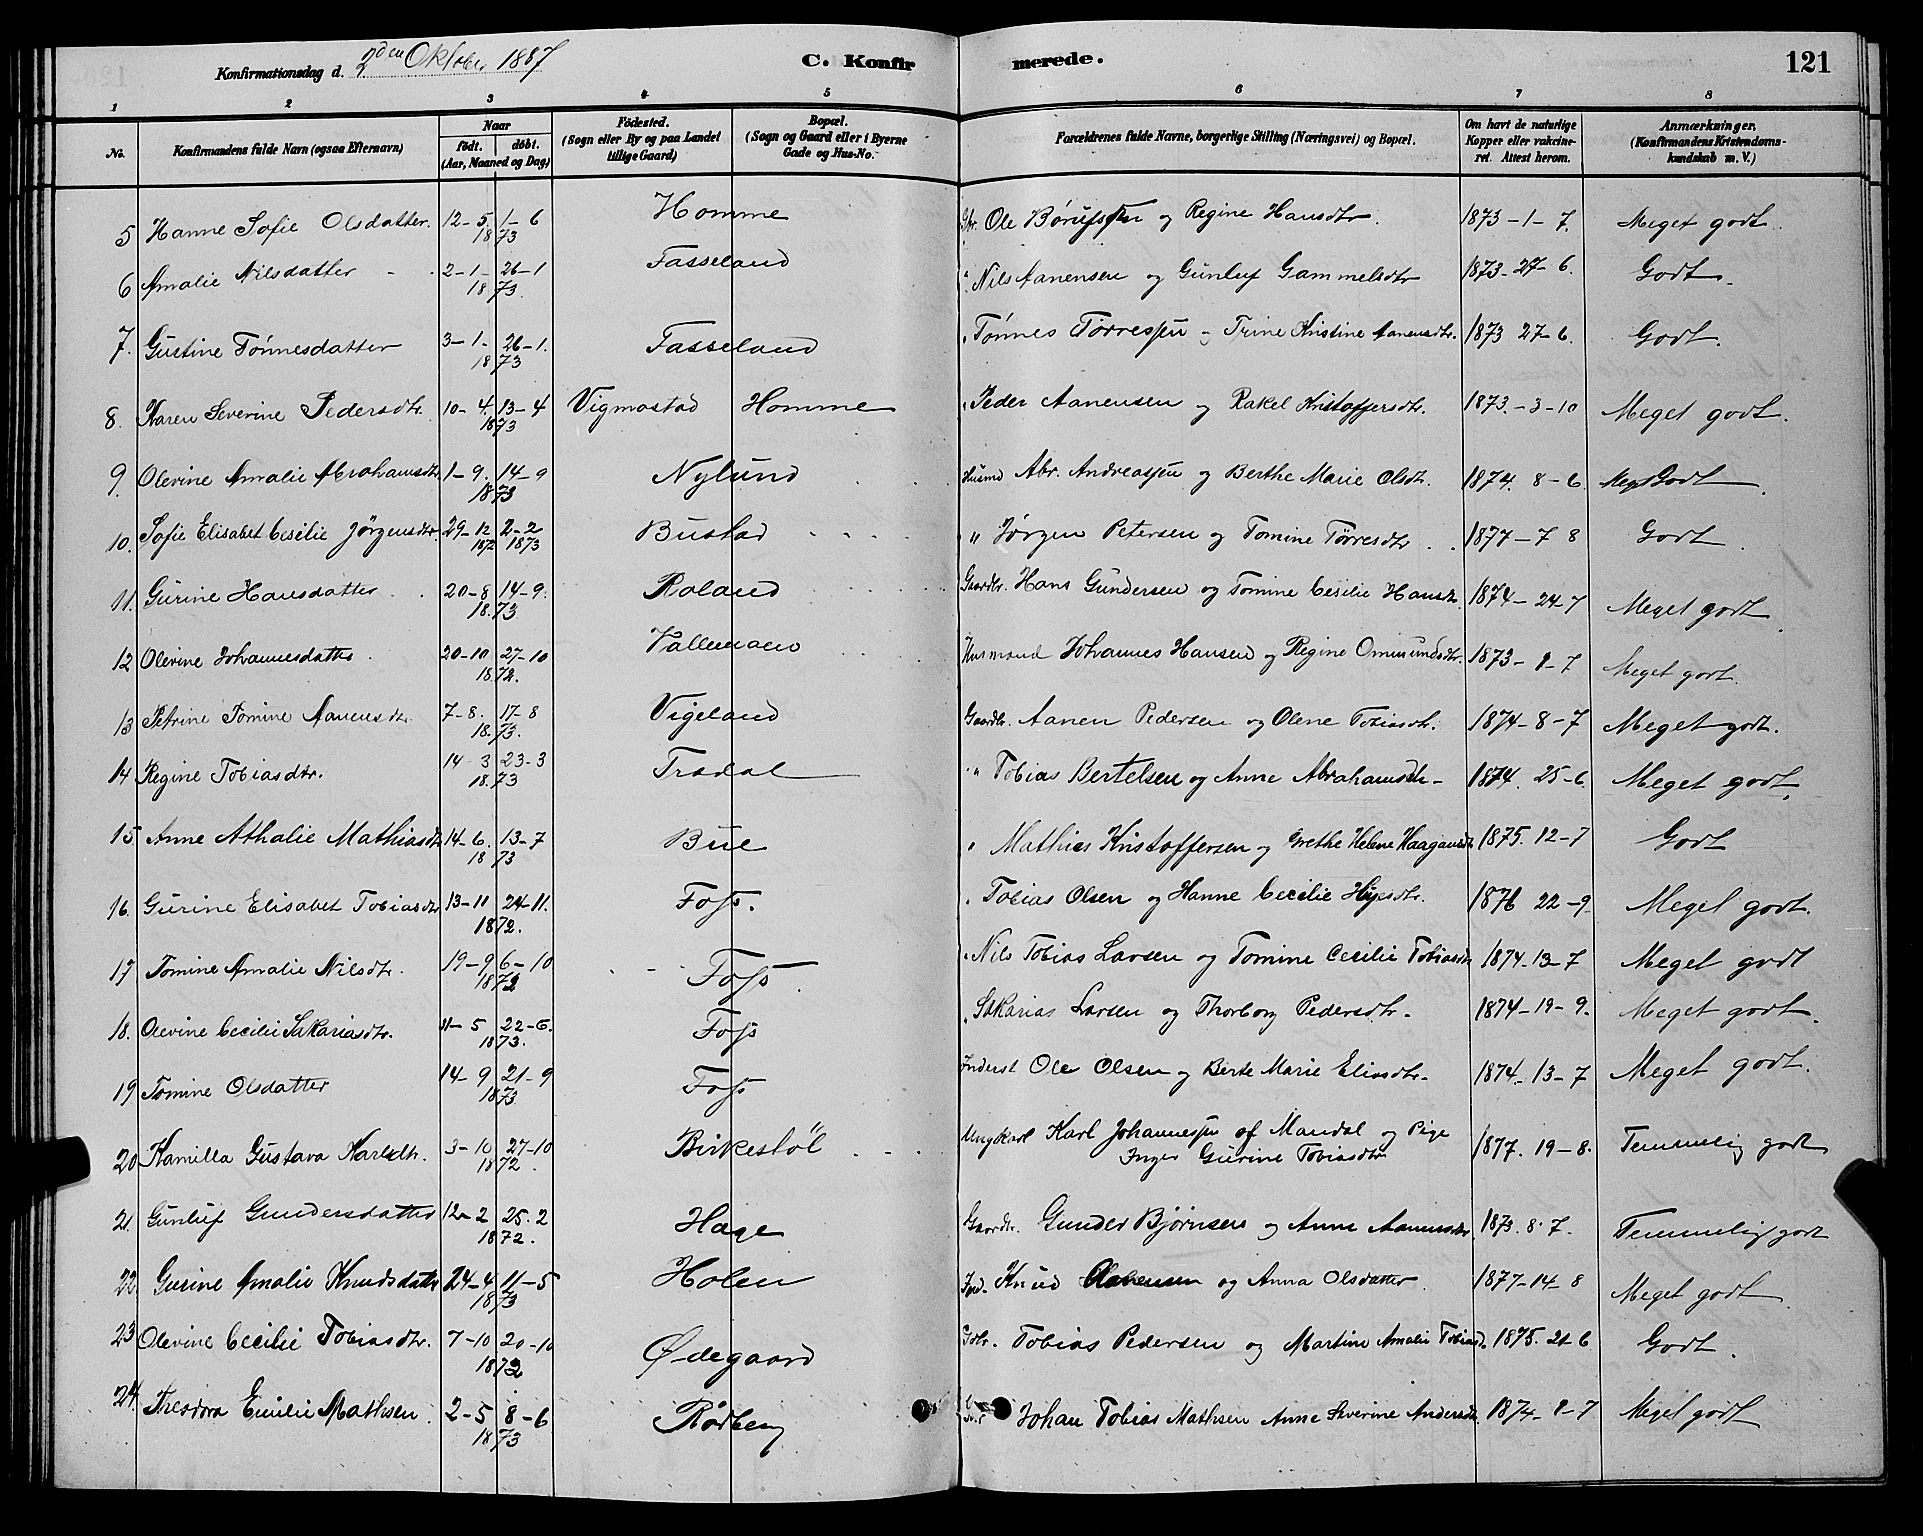 Konfirmationsdag d. 2den Oktober 1887 C. Konfirmerede. 121
1 2 3 4 5 6 7 8
No. Konfirmandens fulde Navn (ogsaa Efternavn) Naar födt. döbt. (Aar, Maaned og Dag) Födested. (Sogn eller By og paa Landet tillige Gaard) Bopæl. (Sogn og Gaard eller i Byerne Gade og Hus-No. Forældrenes fulde Navne, borgerlige Stilling (Næringsvei) og Bopæl. Om havt de naturlige Kopper eller vakcineret. Attest herom. Anmærkninger. (Konfirmandens Kristendomskundskab m. V.)
5 Hanne Sofie Olsdatter. 12-5 1-6 1873 Homme Ole Børufsen og Regine Hansdtr. 1873-1-7. Meget godt.
6 Amalie Nilsdatter 2-1- 26-1 1873. Fasseland " Nils Aanensen og Gunluf Gammelsdtr 1873-27-6. Godt.
7. Gustine Tönnesdatter 3-1- 26-1. 1873 Fasseland " Tönnes Törresen - Trine Kristine Aanensdtr. 1873 27-6. Godt.
8. Karen Severine Pedersdtr. 10-4. 13-4 1873 Vigmostad Homme " Peder Aanensen og Rakel Kristoffersdtr. 1873.-3-10 Meget godt.
9. Olevine Amalie Abrahamsdtr. 1-9. 14-9 1873 Nylund Husmd Abr. Andreassen og Berthe Marie Olsdtr. 1874. 8-6. Meg. Godt.
10. Sofie Elisabet Cesilie Jörgensdtr. 29-12 1872 2-2 1873 Bustad " Jörgen Petersen og Tomine Törresdtr. 1877-7 8 Godt.
11. Gurine Hansdatter 20-8 14-9. 18.73 Roland Gaardbr. Hans Gundersen og Tomine Cesilie Hansdtr. 1874-24-7 Meget godt.
12 Olevine Johannesdatter. 20-10 27-10 1872. Vallemoen Husmand Johannes Hansen og Regine Ommundsdtr. 1873-8-7 Meget godt.
13 Petrine Tomine Aanensdtr. 7-8. 17-8 18.73. Vigeland Gaardbr. Aanen Pedersen og Olene Tobiasdtr. 1874-8-7 Meget godt.
14 Regine Tobiasdtr. 14-3 23-3 18.73 Trædal " Tobias Bertelsen og Anne Abrahamsdtr- 1874. 25-6. Meget godt.
15 Anne Athalie Mathiasdtr 14-6. 13-7 1873 Bue " Mathias Kristoffersen og Grethe Helene Haagansdtr 1875. 12-7 Godt
16. Gurine Elisabet Tobiasdtr 13-11 24-11. 1872. Foss. " Tobias Olsen og Hanne Cecilie Hyesdtr. 1876 22-9. Meget godt.
17 Tomine Amalie Nilsdtr. 19-9 6-10 1872 Foss. " Nils Tobias Larsen og Tomine Cecilie Tobiasdtr 1874-13-7 Meget godt
18. Olevine Cecilie Sakariasdtr. 11-5 22-6. 1873. Foss " Sakarias Larsen og Thorborg Pedersdtr. 1874-19-9. Meget godt.
19 Tomine Olsdatter 14-9 21-9 1873 Foss Inderst Ole Olsen og Berte Marie Eliasdtr. 1874-13-7 Meget godt.
20 Kamilla Gustava Karlsdtr. 3-10 27-10 1872. Birkestöl Ungkarl Karl Johannessen af Mandal og Pige
Inger Gurine Tobiasdtr 1877. 19-8. Temmelig godt
21. Gunluf Gundersdatter 12-2 25.2 1872. Hage Gaardbr. Gunder Björnsen og Anne Aanensdtr. 1873.8.7. Temmelig godt
22. Gurine Amalie Knudsdatter 24-4 11-5 1873 Holen Ind. Knud Aanensen og Anna Olsdatter. 1877-14-8 Meget godt
23 Olevine Cecilie Tobiasdtr. 7-10 20-10 1872 Ödegaard Gdbr. Tobias Pedersen og Martine Amalie Tobiasd. 1875. 21 6 Godt.
24. Theodora Emilie Mathsen. 2-5 8-6 1873 Rödberg Johan Tobias Mathsen Anne Severine Andersdtr 1874-8-7 Meget godt